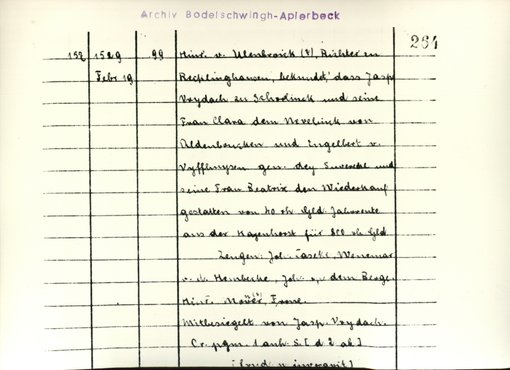 Archiv Bodelschwingh-Aplerbeck
264
152 1529 99 Hinr. v. Ulenbroick (?), Richter en
Febr 19 Recklinghausen, bekundet, dass Jasp
Vrydach en Schodinck und seine
Frau Clara dem von
Aldenboucken und Engelbert v.
Vyffhuysen gen. dey und
seine Frau Beatrix den Wiederkauf
gestatten von 40 rh. Gld. Jahrrente
aus der Hagenhorst für 800 rh. Gld
Zeugen: Joh. Tasche, Wenemar
v. d. Hembecke, Joh. v. dem Berge.
Hinr. Frone.
Mitbesiegelt von Jasp. Vrydach.
Or. pgm. 1 anh. S. [d. 2 ab.]